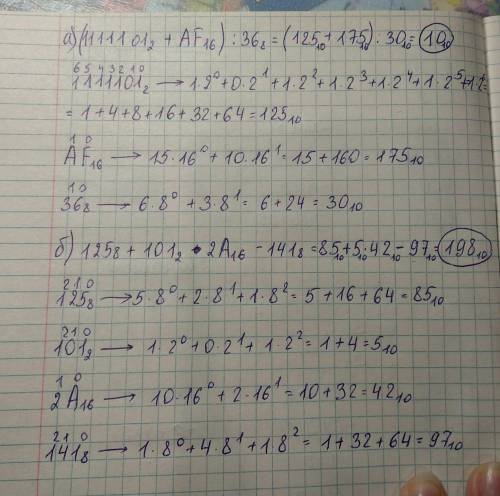 а) (1111101₂ + AF₁₆) : 36₈ = (125₁₀ + 175₁₀) : 30₁₀ = 10₁₀
6 5 4 3 2 1 0
1111101₂ → 1·2⁰ + 0·2¹ + 1·2² + 1·2³ + 1·2⁴ + 1·2⁵ + 1·2⁶ =
= 1 + 4 + 8 + 16 + 32 + 64 = 125₁₀
1 0
AF₁₆ → 15·16⁰ + 10·16¹ = 15 + 160 = 175₁₀
1 0
36₈ → 6·8⁰ + 3·8¹ = 6 + 24 = 30₁₀
б) 125₈ + 101₂ · 2A₁₆ - 141₈ = 85₁₀ + 5₁₀·42₁₀ - 97₁₀ = 198₁₀
2 1 0
125₈ → 5·8⁰ + 2·8¹ + 1·8² = 5 + 16 + 64 = 85₁₀
2 1 0
101₂ → 1·2⁰ + 0·2¹ + 1·2² = 1 + 4 = 5₁₀
1 0
2A₁₆ → 10·16⁰ + 2·16¹ = 10 + 32 = 42₁₀
2 1 0
141₈ → 1·8⁰ + 4·8¹ + 1·8² = 1 + 32 + 64 = 97₁₀